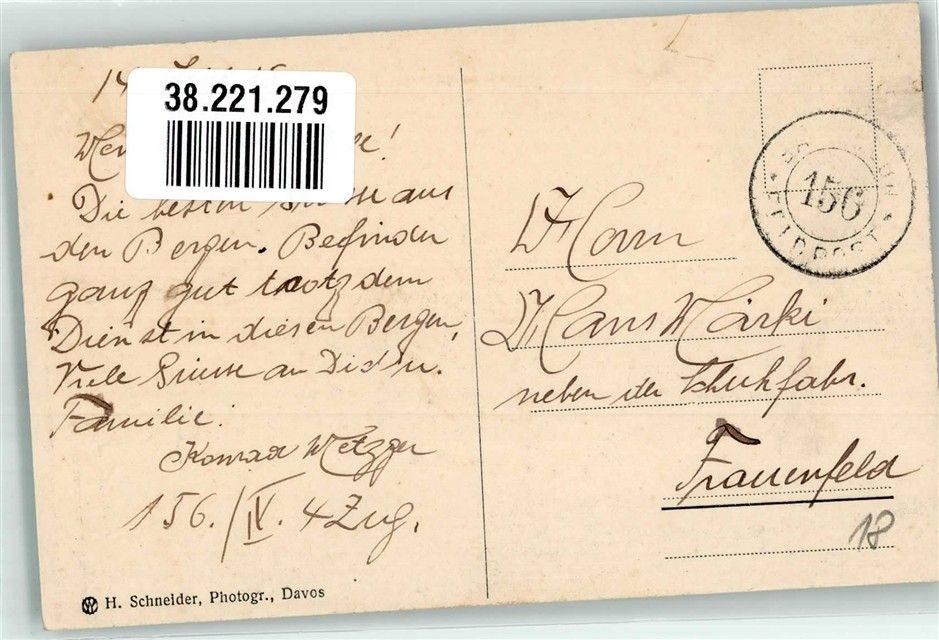 38.221.279
14.
Die besten Grüsse aus
den Bergen. Befinden
ganz gut trotz dem
Dienst in diesen Bergen,
Viele Grüsse an Dich u.
Familie.
Konrad Metzger
156./IV. 4 Zug.
H. Schneider, Photogr., Davos
156
FELDPOST
Herrn
Hans Märki
neben der Schuhfabr.
Frauenfeld
18